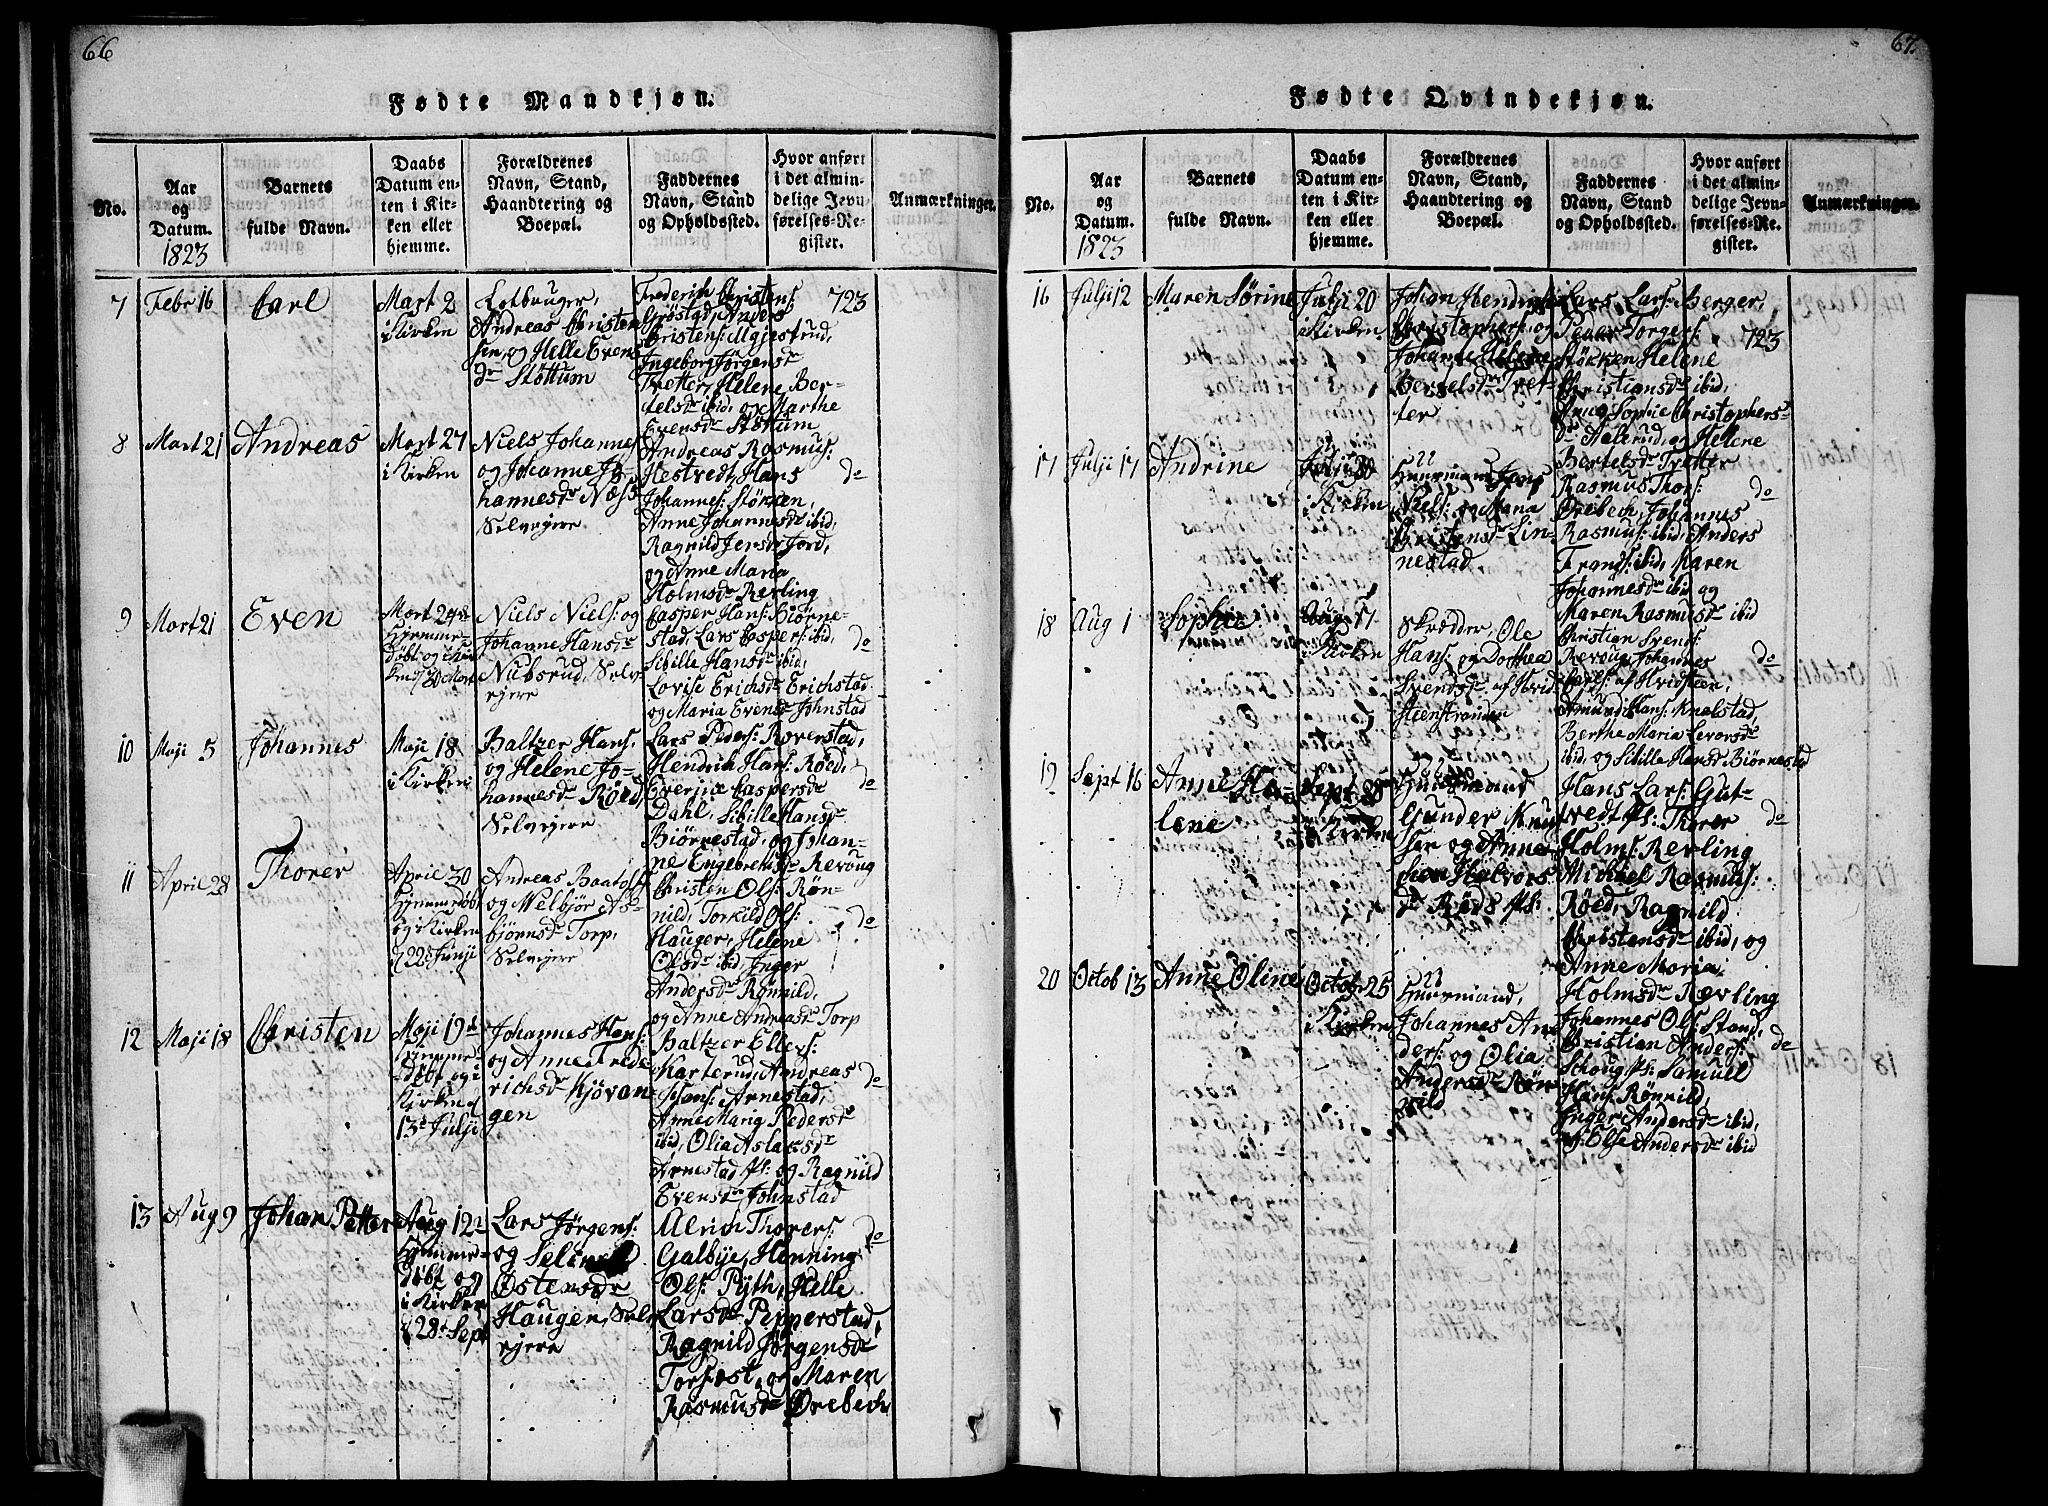 66
Fødte Mandkjøn.
No.
Aar
og
Datum.
1823
Barnets
fulde Navn.
Daabs
Datum en-
ten i Kir-
ken eller
hjemme.
Forældrenes
Navn, Stand,
Haandtering og
Boepæl.
Faddernes
Navn, Stand
og Opholdssted.
Hvor anført
i det almin-
delige Jevn-
førelses-Re-
gister.
Anmærkninger.
7
Febr 16
Carl
Mart 2
i Kirken
Andreas Christen
sen, og Helle Evens
dr Støttum
Frederich Christens:
Grøstad, Anders
Christens: Majestrud,
Ingeborg Jørgensdr
Tretter, Helene Ber-
telsdr ibid, og Marthe
Evensdr Støttum
723
8
Mart 21
Andreas
Mart 27
i Kirken
Niels Johannes
og Johanne Jo-
hannesdr Næss
Selvejere
Andreas Rasmus:
Hestvedt, Hans
Johannes: Størken,
Anne Johannesdr ibid,
Ragnild Jensdr Jord,
og Anne Maria
Holmsdr Revling
do
9
Mart 21
Even
Mart 24de
hjemme-
døbt og i Kir
ken 30 Mart
Niels Niels: og
Johanne Hansdr
Nubsrud, Selv-
ejere
Casper Hans: Biørne-
stad, Lars Caspers: ibid,
Sibille Hansdr ibid,
Lovise Erichsdr Erichstad
og Maria Evensdr Johnstad
do
10
Maji 5
Johannes
Maji 18
i Kirken
Baltzer Hans:
og Helene Jo-
hannesdr Røed,
Selvejere
Lars Peders: Roverstad,
Hendrich Hans: Røed,
Everine Caspersdr
Dahl, Sibille Hansdr
Biørnestad, og Johan-
ne Engebrechtsdr Revoug
do
11
April 28
Thorer
April 30
hjemmedøbt
og i Kirken
d 22 Junji
Andreas Baatols:
og Welbjør As-
bjørnsdr Torp,
Selvejere
Christen Ols: Røn-
nild, Torkild Ols:
Hauger, Helene
Olsdr ibid, Inger
Andersdr Rønnild,
og Anne Andreasdr Torp
do
12
Maji 18
Christen
Maji 19de
hjemme-
døbt og i
Kirken d
13de Julji
Johannes Hans:
og Anne Frede
richsdr Kjøvan-
gen
Baltzer Ellers:
Karterud, Andreas
Hans: Arnestad,
Anne Marie Pedersdr
ibid, Olia Aslaksdr
Arnestad Pl: og Ragnild
Evensdr Johnstad
do
13
Aug 9
Johan Petter
Aug 12
hjemme-
døbt og
i Kirken
d 28de Sept
Lars Jørgens:
og
Østensdr
Haugen, Selv
ejere
Alrich Thorers:
Galbye, Henning
Ols: Pyth, Helle
Larsdr Pepperstad,
Ragnild Jørgensdr
Torfæst, og Maren
Rasmusdr Ørebech
do
67.
Fødte Qvindekjøn.
No.
Aar
og
Datum.
1823
Barnets
fulde Navn.
Daabs
Datum en-
ten i Kir-
ken eller
hjemme.
Forældrenes
Navn, Stand,
Haandtering og
Boepæl.
Faddernes
Navn, Stand
og Opholdssted.
Hvor anført
i det almin-
delige Jevn-
førelses-Re-
gister.
Anmærkninger.
16
Julji 12
Maren Sørine
Julji 20
i Kirken
Johan Hendrich
Christophers: og
Johanne Helene
Bertelsdr Tret-
ter
Lars Lars: Berger,
Peder Torgers:
Støkken, Helene
Christiansdr ibid,
Anne Sophie Christophers-
dr Aalerud, og Helene
Bertelsdr Tretter
723
17
Julji 17
Andrine
Julji 20
i Kirken
Huusmand Jens
Niels: og Maria
Christensdr Lin-
nestad
Rasmus Thors:
Ørebech, Johannes
Rasmus: ibid, Anders
Frands: ibid, Karen
Johannesdr ibid og
Maren Rasmusdr ibid
do
18
Aug 1
Sophie
Aug 17
i Kirken
Skrædder, Ole
Hans: og Dorthea
Svendsdr af Hvid
steenstranden
Christian Svends:
Revoug, Johannes
Carls: af Hvidsteen,
Amund Hans: Knalstad,
Berthe Maria Levorsdr
ibid, og Sibille Hansdr Biørnestad
do
19
Sept 16
Anne He-
lene
Sept 28
i Kirken
Huusmand
Gunder Knud
sen og Anne
Halvors
dr Røeds Pl:
Hans Lars: Gut-
vedt Pl: Thorer
Holms: Revling
Michael Rasmus:
Røed, Ragnild
Christensdr ibid, og
Anne Maria
Holmsdr Revling
do
20
Octob 13
Anne Oline
Octob 25
i Kirken
Huusmand,
Johannes An
ders: og Olia
Andersdr Røn
nild
Johannes Ols: Stand,
Christian Anders:
Schoug Pl: Samuel
Hans: Rønnild,
Inger Andersdr ibid,
og Else Andersdr ibid
do